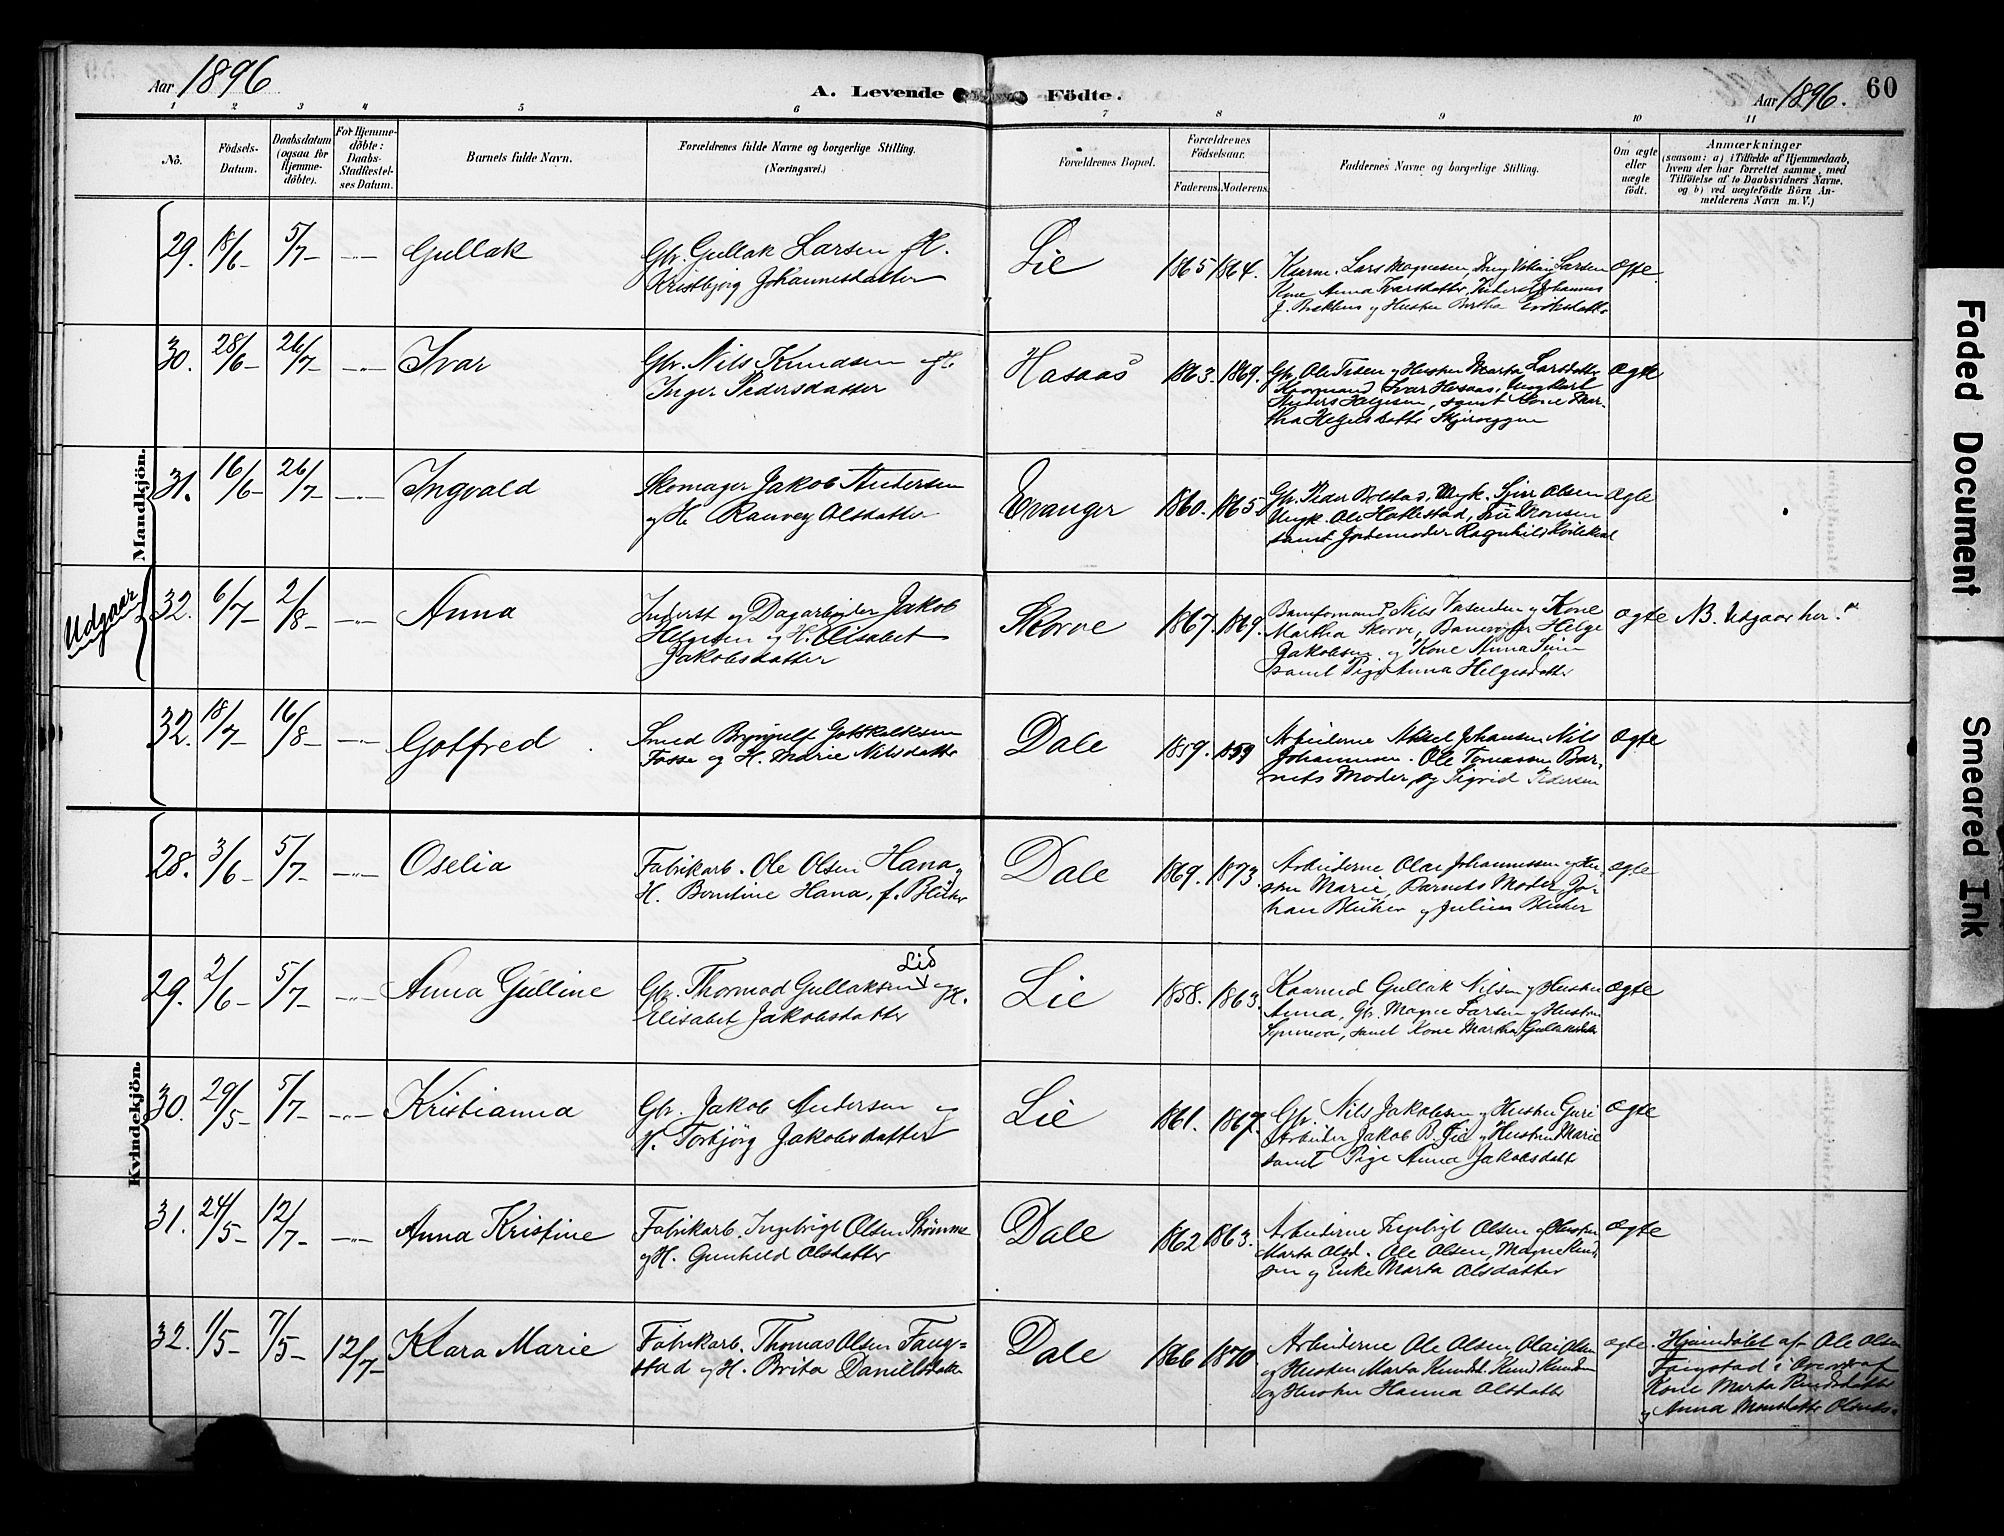 Aar 1896
A. Levende Födte.
Aar 1896. 60
1 2 3 4 5 6 7 8 9 10 11
No.
Födsels-
Datum.
Daabsdatum
(ogsaa for
Hjemme-
døbte).
For Hjemme-
døbte:
Daabs-
Stadfæstel-
ses Datum.
Barnets fulde Navn.
Forældrenes fulde Navne og borgerlige Stilling.
(Næringsvei.)
Forældrenes Bopæl.
Forældrenes
Födselsaar.
Faderens. Moderens.
Faddernes Navne og borgerlige Stilling.
Om ægte
eller
uægte
født.
Anmærkninger
(saasom: a) i Tilfælde af Hjemmedaab,
hvem der har forrettet samme, med
Tilföielse af to Daabsvidners Navne,
og b) ved uægtefödte Börn An-
melderens Navn m. V.)
Mandkjön.
29. 18/6- 5/7- -"- Gullak
Gbr. Gullak Larsen H.
Kristbjørg Johannesdatter
Lie 1865 1864.
Kaarm. Lars Magnesen, Larsen
Kone Anna Ivarsdatter, Johannes
J. og Hustru Bertha
ægte.
30. 28/6- 26/7- -"- Ivar
Gbr. Nils Knudsen og H.
Inger Pedersdatter
Hasaas 1863. 1869.
Gbr. Ole og Hustru Marta Larsdatter
Kaarmand Ivar Hasaas, Ungkarl
Anders Helgesen, samt Kone Mar-
tha Helgesdatter
ægte
31. 16/6- 26/7- -"- Ingvald
Skomager Jakob Andersen
og H. Ranvey Olsdatter
Evanger 1860. 1865
Gbr. Peder Bolstad, Ungk. Sjur Olsen
Ungk. Ole Monsen
samt Jordemoder Ragnhild
ægte
Udgaar
32. 6/7- 2/8- -"- Anna
Inderst og Dagarbejder Jakob
Helgesen og H. Elisabet
Jakobsdatter
Skorve 1867. 1869.
Nils og Kone
Martha Skorve, Helge
Jakobsen og Kone Anna
samt Pige Anna Helgesdatter
ægte NB. Udgaar her.
32. 18/7- 16/8- -"- Gotfred
Smed Brynjulf Gotskalksen
Fosse og H. Marie Nilsdatter
Dale 1859. 1859
Arbeiderne Aksel Johansen Nils
Johannesen. Ole Tomassen Bar-
nets Moder, og Sigrid Pedersen
ægte
Kvindekjön.
28. 3/6- 5/7- -"- Oselia
Fabrikarb. Ole Olsen Hana og
H. Berntine Hana, f. Blücher
Dale 1869. 1873.
Arbeiderne Olai Johannessen og Hu-
stru Marie, Barnets Moder, Jo-
han Blücher og Julius Blücher
ægte
29. 2/6- 5/7- -"- Anna Gülline
Lid
Gbr. Thormod Gullaksen og H.
Elisabet Jakobsdatter
Lie 1858. 1863.
Kaarmd Gullak Nilsen og Hustru
Anna, Gbr. Magne Larsen og Hustru
Synneva, samt Kone Martha Gullaksdatter
ægte
30. 29/5- 5/7- -"- Kristianna
Gbr. Jakob Andersen og
H. Torbjörg Jakobsdatter
Lie 1861. 1867.
Gbr. Nils Jakobsen og Hustru Guri
Arbeider Jakob B. Lie og Hustru Marie
samt Pige Anna Jakobsdatter
ægte
31. 24/5- 12/7- -"- Anna Kristine
Fabrikarb. Ingebrigt Olsen Strömme
og H. Gunhild Olsdatter
Dale 1862 1863.
Arbeiderne Ingebrigt Olsen og Hustru
Marta Olsd. Ole Olsen, Magne Knud-
sen og Enke Marta Olsdatter
ægte
32. 1/5- 7/5- 12/7- Klara Marie
Fabrikarb. Thomas Olsen Faug-
stad og H. Brita Danielsdatter
Dale 1866 1870
Arbeiderne Ole Olsen, Olai Olsen
og Hustru Marta Knudsd. Knud Knudsen
og Hustru Hanna Olsdatter
ægte.
Hjemdöbt af Ole Olsen
Faugstad i Overvær af
Kone Marta Knudsdatter
og Anna Monsdatter
Faded Document
Smeared Ink